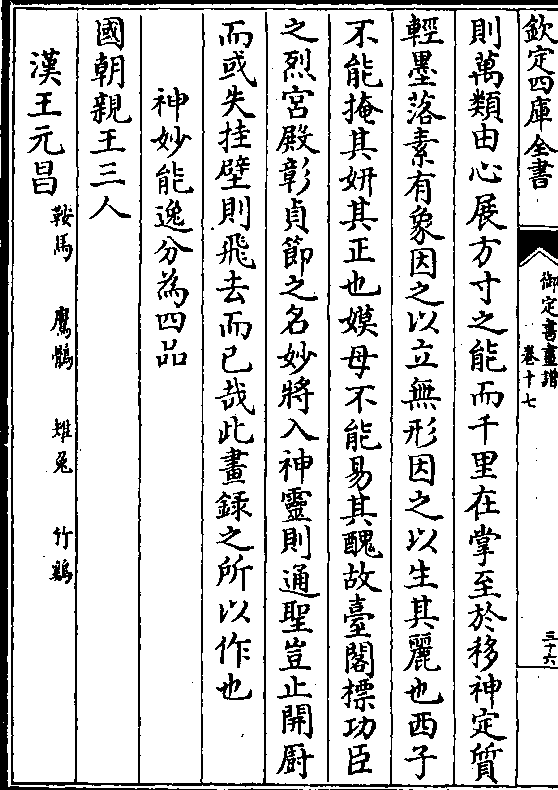 欽定四庫全書
御定書畫譜
卷十七
三十六
則萬類由心展方寸之能而千里在掌至於移神定質
輕墨落素有象因之以立無形因之以生其麗也西子
不能掩其妍其正也嫫母不能易其醜故臺閣摽功臣
之烈宮殿彰貞節之名妙將入神靈則通聖豈止開廚
而或失挂壁則飛去而已哉此畫録之所以作也
神妙能逸分為四品
國朝親王三人
漢王元昌 鞍馬 鷹鶻 雉兔 竹鷄